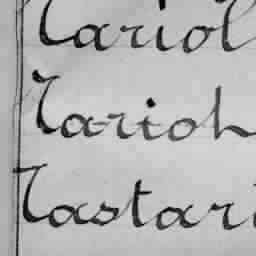 Tariol
Tarioh
Tastari